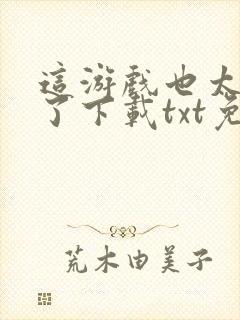 這游戲也太
了下載txt免
荒木由美子